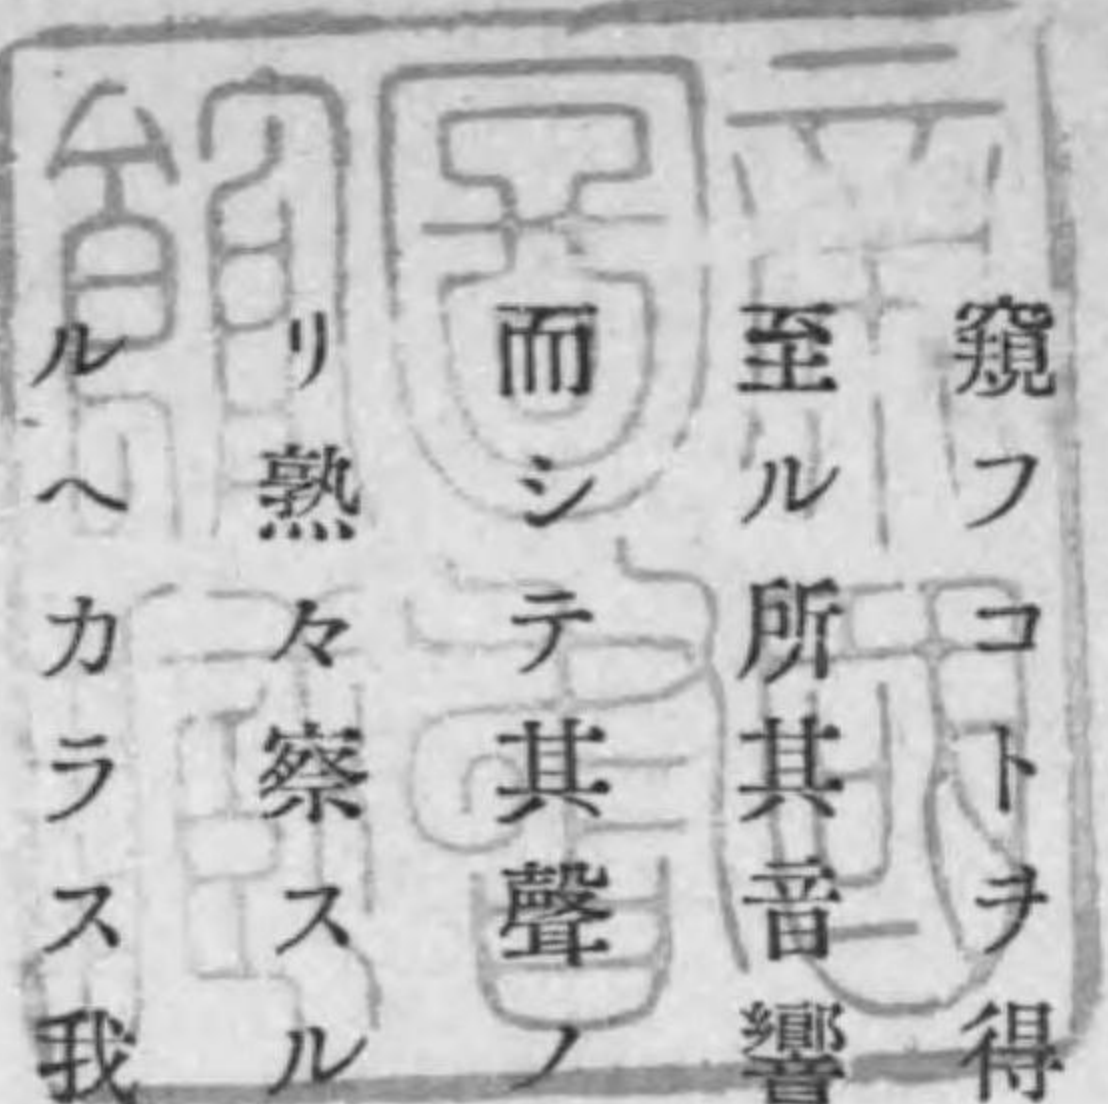 窺フコトヲ得
至ル所其音響
而シテ其聲ノ
リ熟々察スル
ルヘカラス我